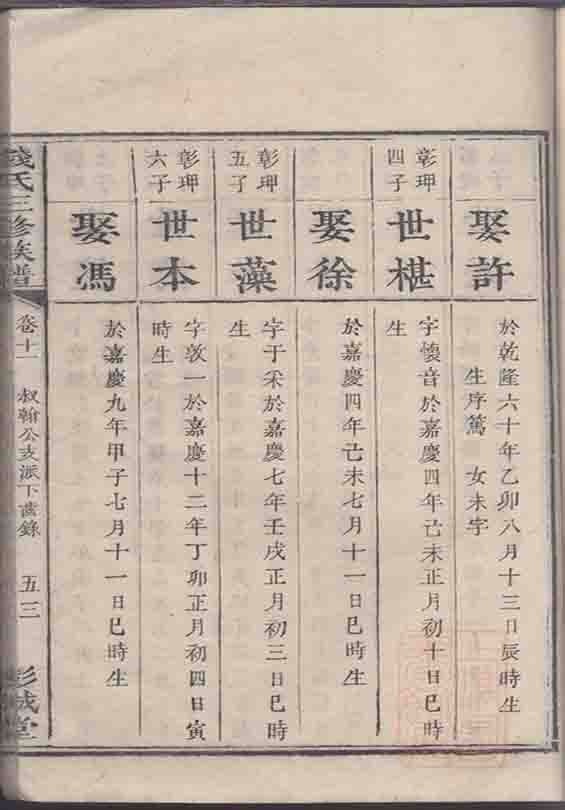 娶許
於乾隆六十年乙卯八月十三日辰時生
生序篤 女未字
彰玾
四子
世椹
字懷音於嘉慶四年己未正月初十日巳時
生
娶徐
於嘉慶四年己未七月十一日巳時生
彰玾
五子
世藻
字于采於嘉慶七年壬戌正月初三日巳時
生
彰玾
六子
世本
字敦一於嘉慶十二年丁卯正月初四日寅
時生
娶馮
於嘉慶九年甲子七月十一日巳時生
錢氏三修族譜
卷十一 叔翰公支派下齒錄 五三
彭城堂